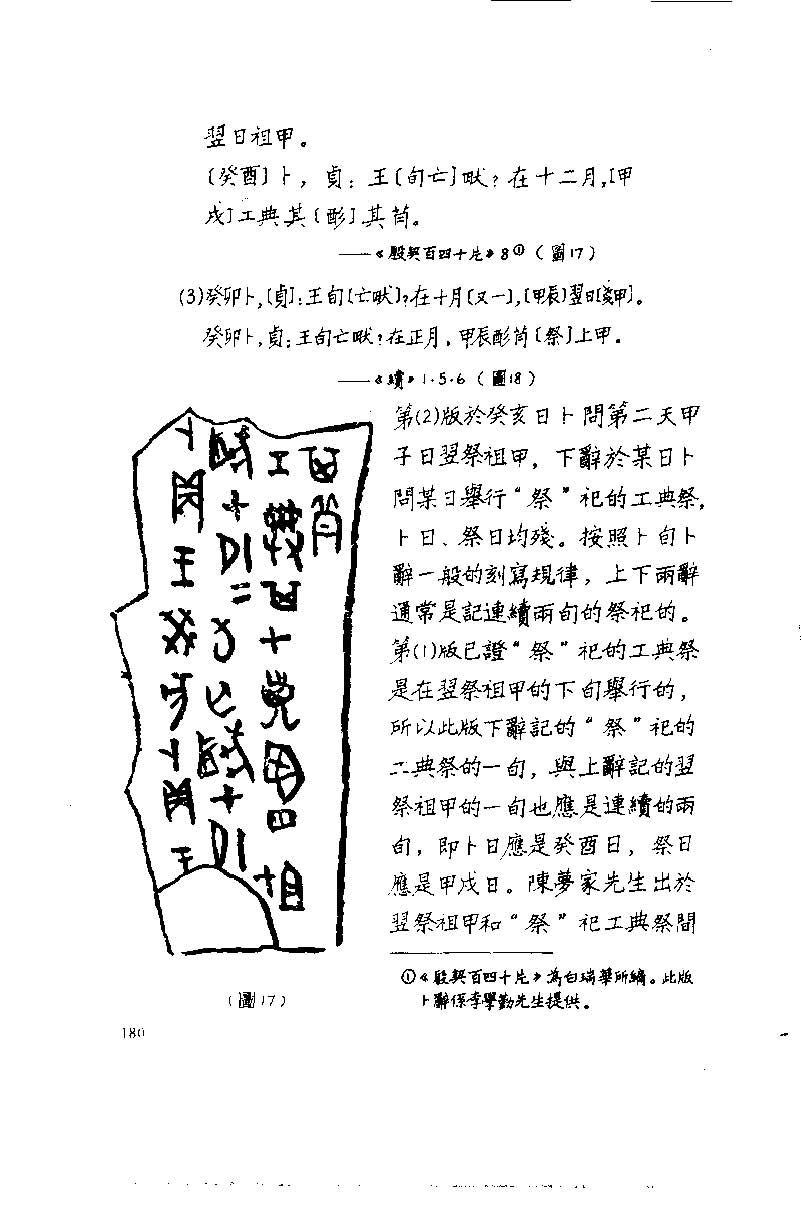 翌日祖甲。
〔癸酉〕卜，貞：王〔旬亡〕㕢？在十二月，〔甲
戌〕工典其〔酌〕其
——《殷契百四十片》8①（圖17）
(3)癸卯卜，〔貞〕：王旬〔亡㕢〕？在十月〔又一〕，〔甲辰〕翌日〔戔甲〕。
癸卯卜，貞：王旬亡㕢？在正月，甲辰酌〔祭〕上甲。
——《續》1·5·6（圖18）
第(2)版於癸亥日卜問第二天甲
子日翌祭祖甲，下辭於某日卜
問某日舉行“祭”祀的工典祭，
卜日、祭日均殘。按照卜旬卜
辭一般的刻寫規律，上下兩辭
通常是記連續兩旬的祭祀的。
第(1)版已證“祭”祀的工典祭
是在翌祭祖甲的下旬舉行的，
所以此版下辭記的“祭”祀的
工典祭的一旬，與上辭記的翌
祭祖甲的一旬也應是連續的兩
旬，即卜日應是癸酉日，祭日
應是甲戌日。陳夢家先生出於
翌祭祖甲和“祭”祀工典祭間
①《殷契百四十片》為白瑞華所編。此版
卜辭係李學勤先生提供。
（圖17）
180